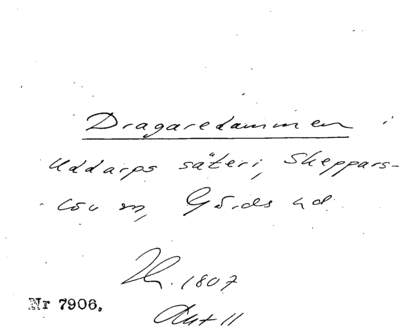 Dragaredammen i
Uddarps säteri, Skeppars-
löv sn, Gärds hd
1807
Akt 11
Nr 7906.